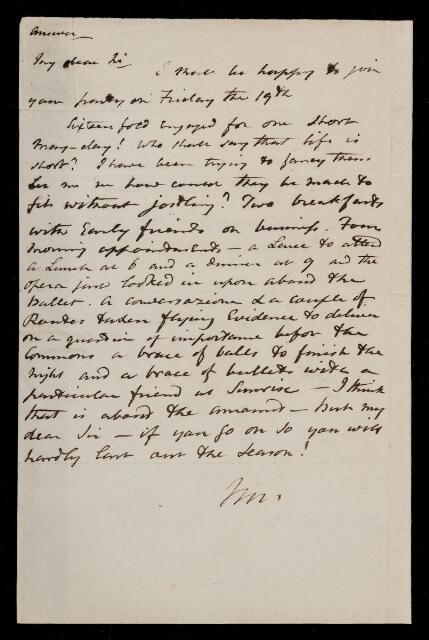 Answer
My dear Sir
I shall be happy to join
your party on Friday the 19th
Sixteen fold engaged for one short
May-day! Who shall say that life is
short? I have been trying to fancy them
let me see how can they be made to
fit without jostling? Two breakfasts
with Early friends on business. Four
morning appointments - a Levee to attend
a Lunch at 6 and a dinner at 9 and the
opera just looked in upon about the
Ballet. A conversazione & a couple of
Routes taken flying Evidence to deliver
on a question of importance before the
Commons a brace of balls to finish the
night and a brace of bullets with a
particular friend at Sunrise - I think
that is about the amount - but my
dear Sir - if you go on so you will
hardly last out the season!